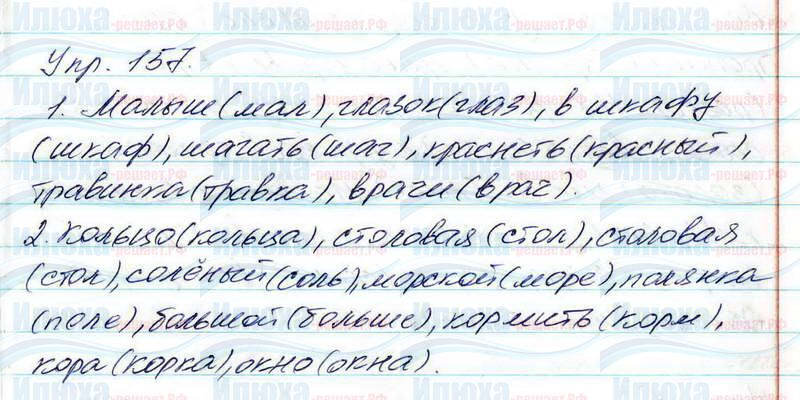 Упр. 157.
1. Малыше(мал), глазок(глаз), в шкафу
(шкаф), шагать(шаг), краснеть(красный),
травинка(травка), враги(враг).
2. Кольцо(кольца), столовая (стол), столовая
(стол), солёный(соль), морской(море), полянка
(поле), большой(больше), кормить(корм),
кора(корка), окно(окна).